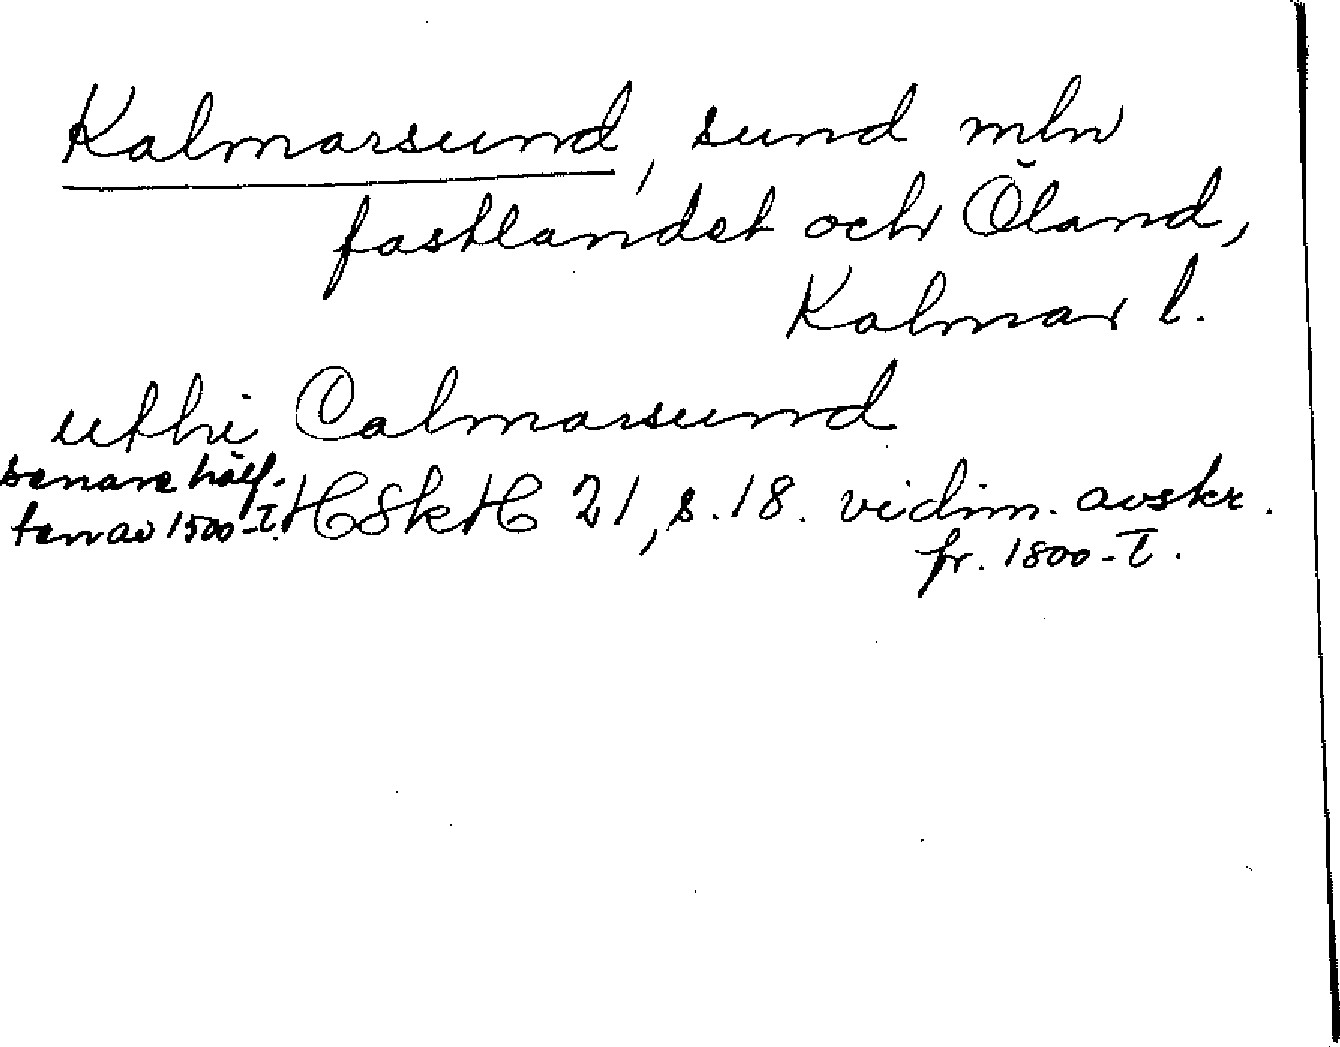 Kalmarsund, sund mln
fastlandet och Öland,
Kalmar l.
uthi Calmarsund
senare hälf-
ten av 1500-T. HSkH 21, s. 18. vidim. avskr.
fr. 1800-T.